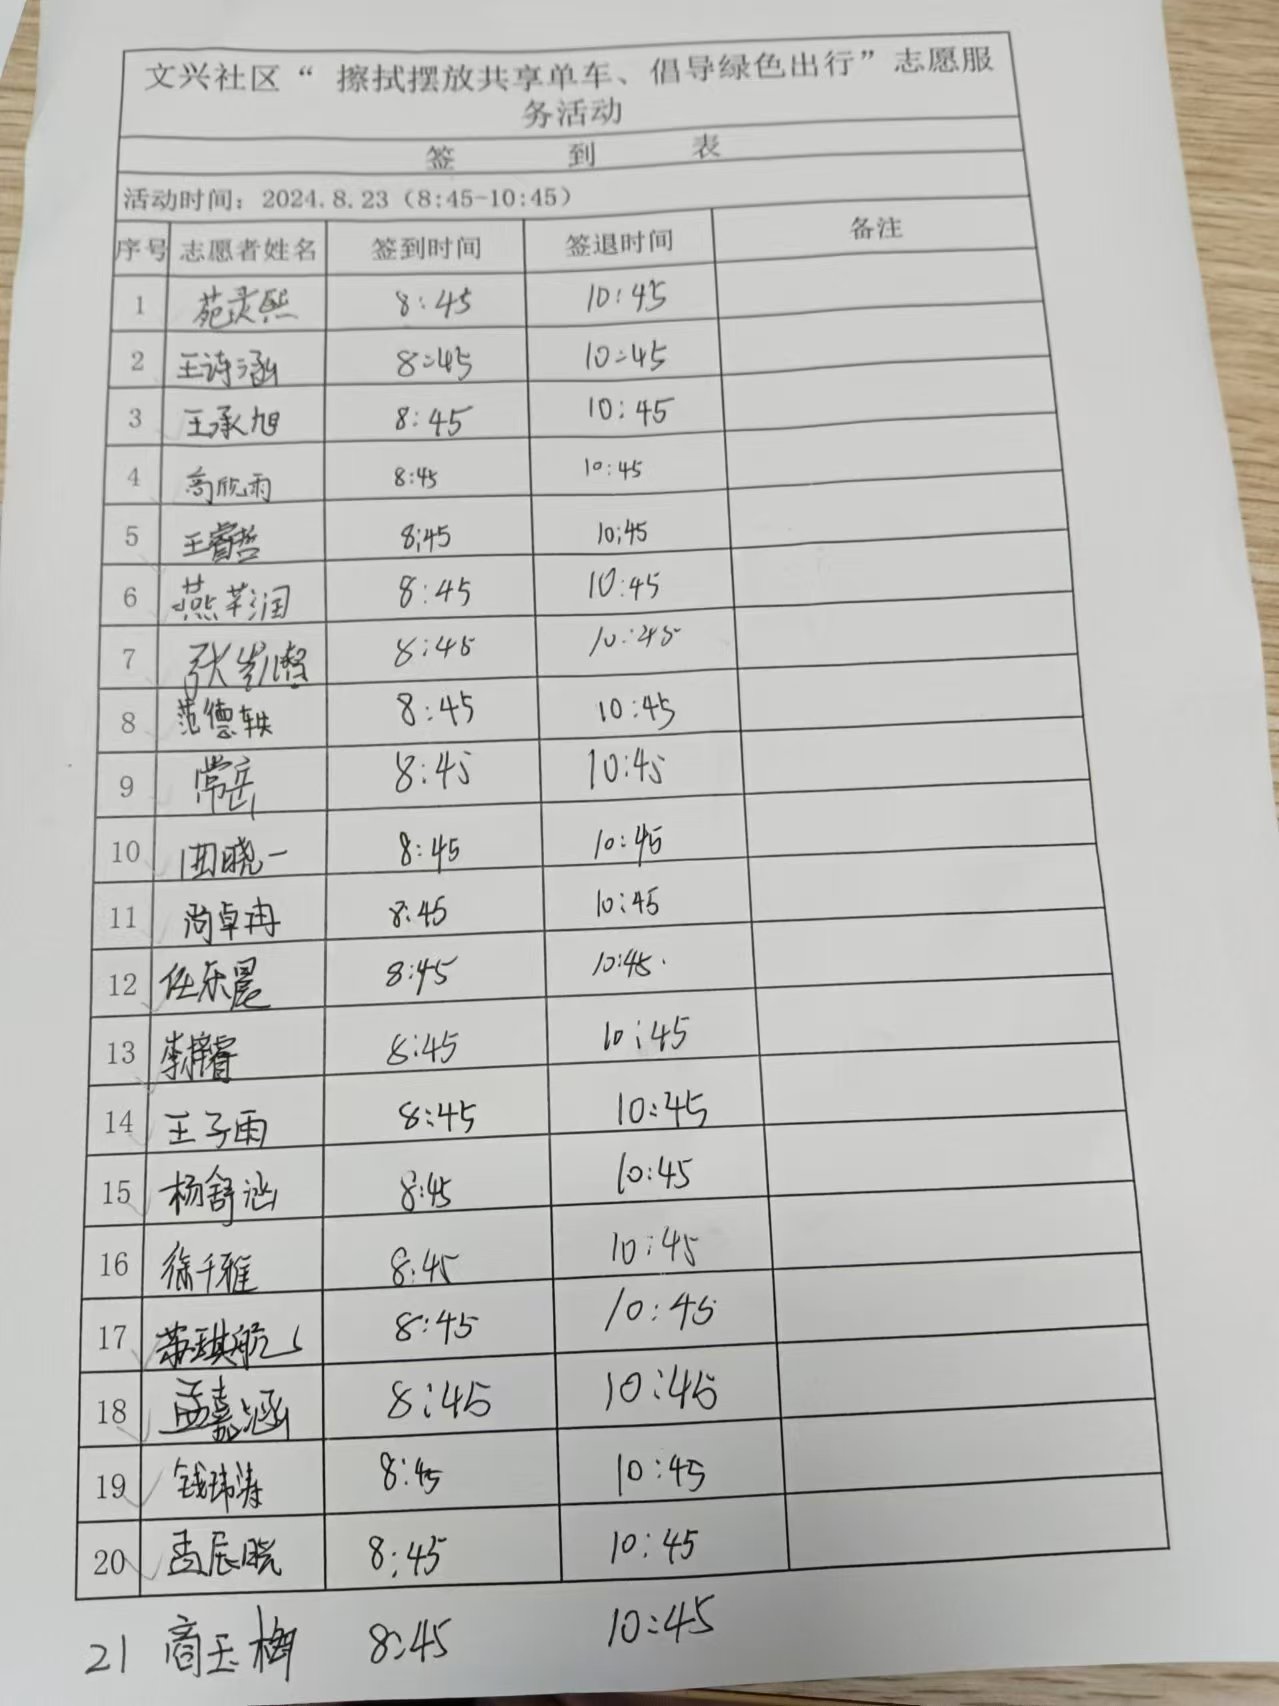 文兴社区“ 擦拭摆放共享单车、倡导绿色出行”志愿服
务活动
签 到 表
活动时间：2024.8.23（8:45-10:45）
序号 志愿者姓名 签到时间 签退时间 备注
1 苑灵熙 8:45 10:45
2 王诗涵 8:45 10:45
3 王承旭 8:45 10:45
4 高欣雨 8:45 10:45
5 王睿哲 8:45 10:45
6 燕芊润 8:45 10:45
7 张 8:45 10:45
8 范德轶 8:45 10:45
9 常 8:45 10:45
10 田晓一 8:45 10:45
11 尚卓冉 8:45 10:45
12 任乐晨 8:45 10:45
13 李梓睿 8:45 10:45
14 王子雨 8:45 10:45
15 杨舒涵 8:45 10:45
16 徐千雅 8:45 10:45
17 苏琪航 8:45 10:45
18 孟嘉涵 8:45 10:45
19 钱玮涛 8:45 10:45
20 孟辰晓 8:45 10:45
21 商玉梅 8:45 10:45